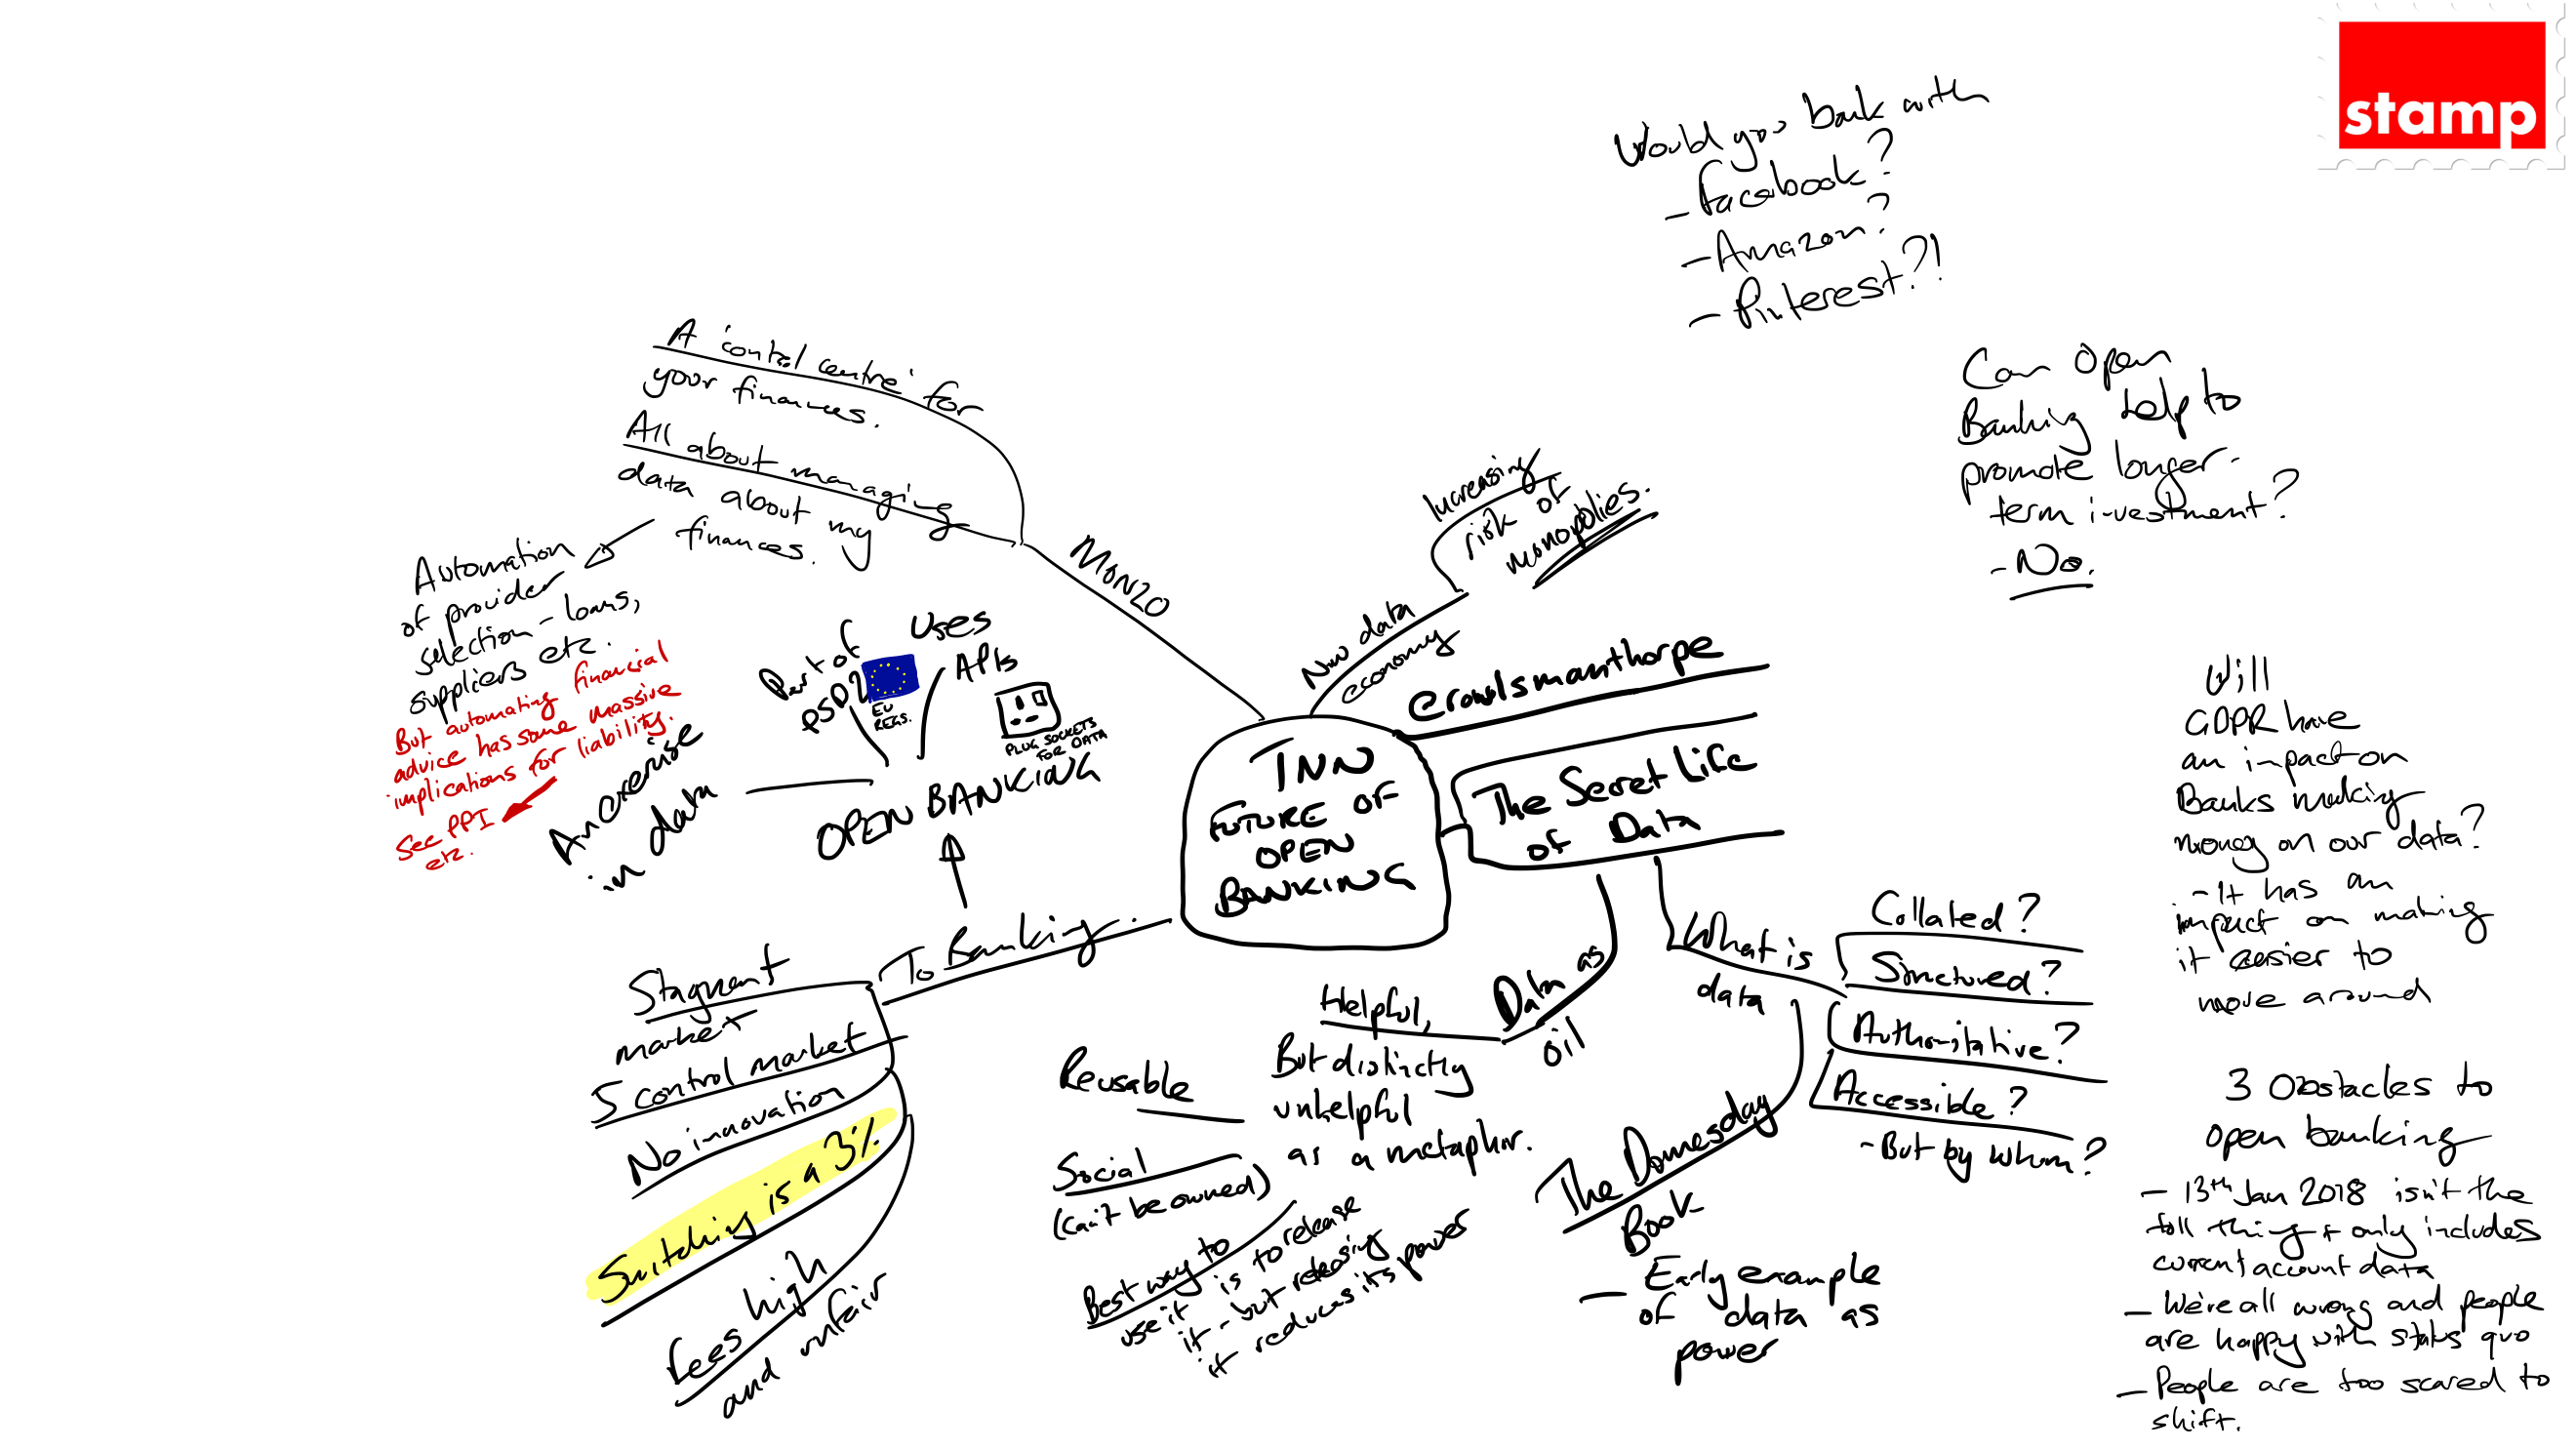 stamp
Would you bank with
- Facebook?
- Amazon?
- Pinterest?!
Can Open
Banking help to
promote longer-
term investment?
- No.
Will
GDPR have
an impact on
Banks making
money on our data?
- It has an
impact on making
it easier to
move around
3 Obstacles to
open banking
- 13th Jan 2018 isn't the
full thing + only includes
current account data
- We're all wrong and people
are happy with status quo
- People are too scared to
shift.
TNN
FUTURE OF
OPEN
BANKING
@rowlsmanthorpe
The Secret Life
of Data
What is
data
Collated?
Structured?
Authoritative?
Accessible?
- But by whom?
The Domesday
Book
- Early example
of data as
power
Data as
oil
Helpful,
But distinctly
unhelpful
as a metaphor.
Reusable
Social
(can't be owned)
Best way to
use it is to release
it - but releasing
it reduces its power
To Banking.
Stagnant
market
5 control market
No innovation
Switching is a 3%
Fees high
and unfair
OPEN BANKING
An exercise
in data
Part of
PSD2
EU
REGS.
Uses
APIs
PLUG SOCKETS
FOR DATA
MONZO
A 'control centre' for
your finances.
All about managing
data about my
finances.
Automation
of provider
selection - loans,
suppliers etc.
But automating financial
advice has some massive
implications for liability.
See PPI
etc.
New data
economy
Increasing
risk of
monopolies.